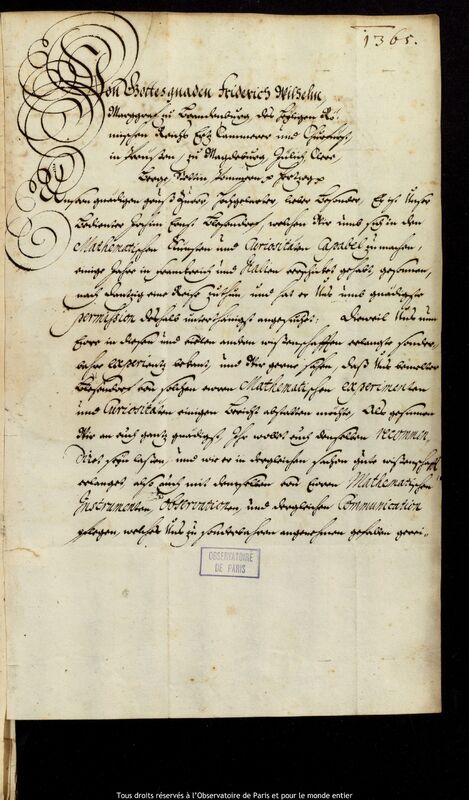 1365.
Von Gottes gnaden Friderich Wilhelm
Marggraf zu Brandenburg des heyligen Rö-
mischen Reichs Ertz Cammerer und Churfürst,
in Preussen, zu Magdeburg, Gülich, Cleve,
Berge, Stettin Pommern p. Hertzog p
Unsern gnedigen gruß zuvor, Hochgelarter, lieber Besonder, Es ist Unser
Bedienter Joachim Ernst Blesendorf, welchen Wir umb sich in den
Mathematischen Künsten und Curiositäten Capabel zu machen,
einige Jahre in Franckreich und Italien verschicket gehabt, gesonnen,
nach Dantzig eine Reise zuthun, und hat er Uns umb gnädigste
permission deshalb unterthänigst angesuchet; Dieweil Uns nun
Eure in diesen und vielen andern wissenschafften erlangte sonder-
bahre experientz bekant, und Wir gerne sehen, daß Uns bemelter
Blesendorf von solchen euren Mathematischen experimenten
und Curiositäten einigen Bericht abstatten möchte, Als gesinnen
Wir an euch gantz gnädigst, Ihr wollet euch denselben recommen,
diret seyn lassen, und wie er in dergleichen sachen gute wissenschafft
erlanget, also auch mit demselben von Euren Mathematischen
Instrumenten, Observationen und dergleichen Communication
pflegen, welches Uns zu sonderbahren angenehmen gefallen gerei-
OBSERVATOIRE
DE PARIS
Tous droits réservés à l'Observatoire de Paris et pour le monde entier